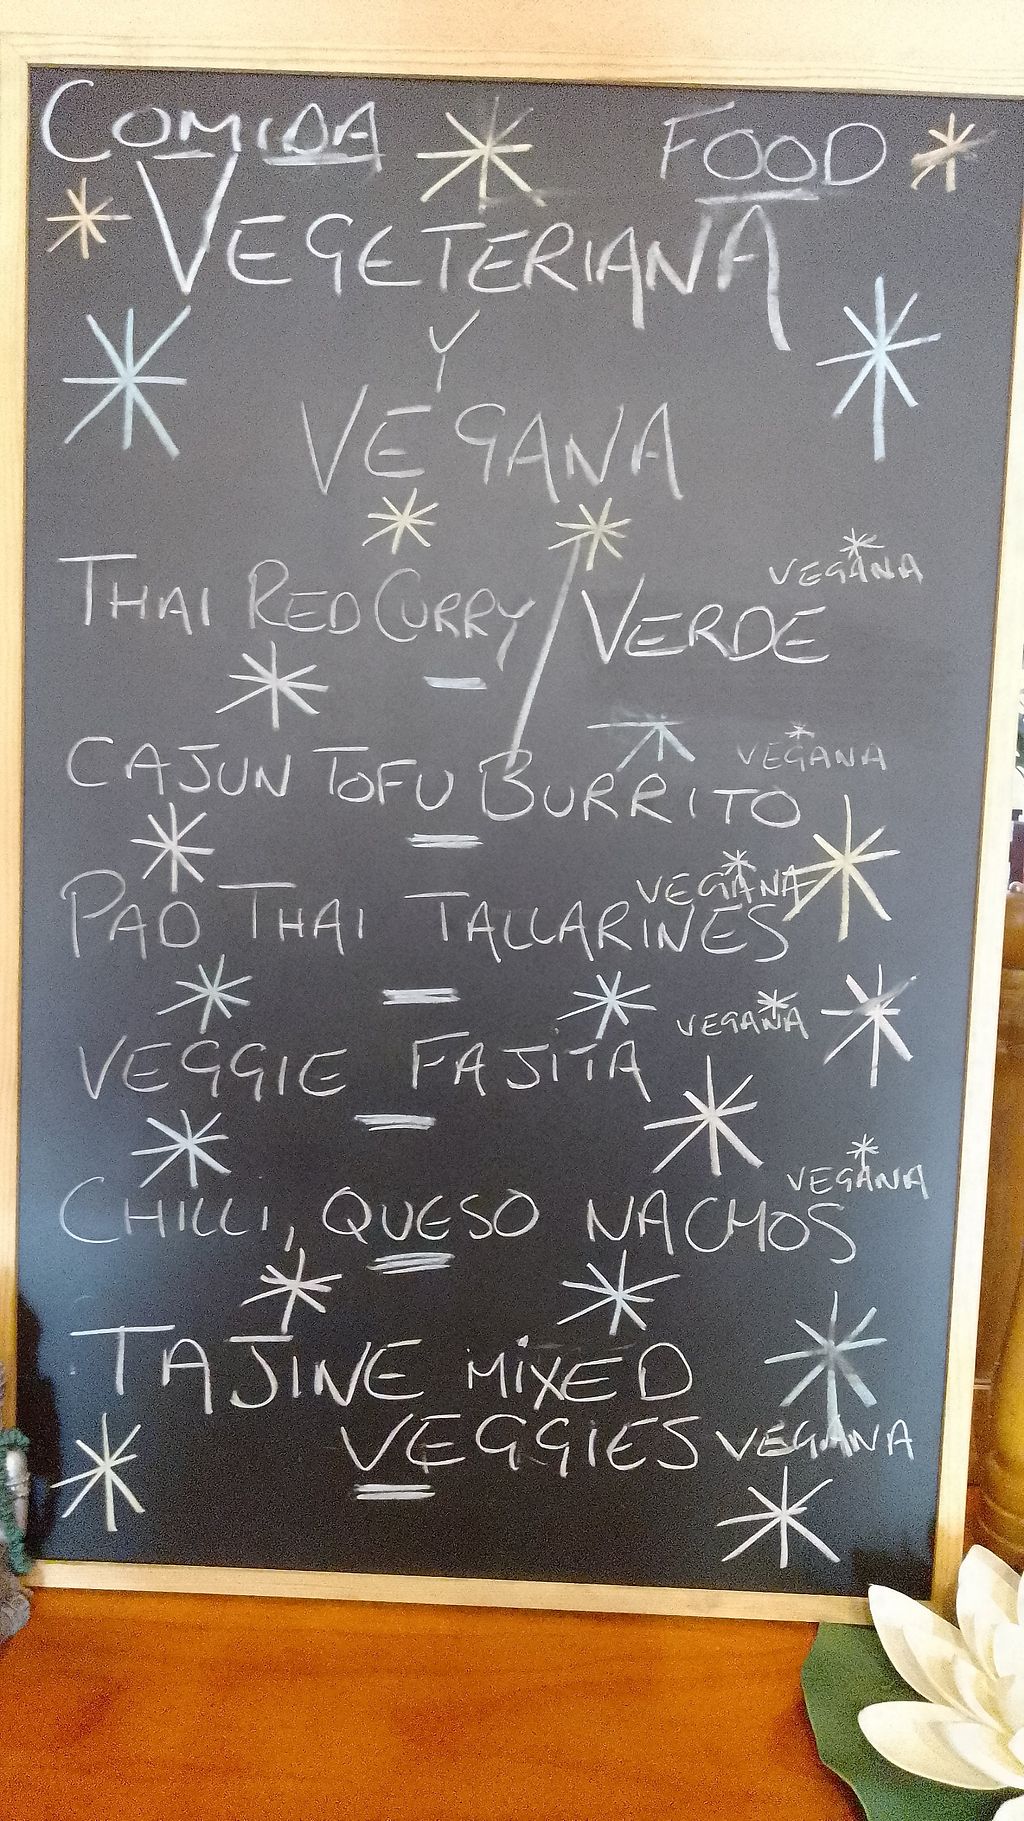 COMIDA FOOD
VEGETERIANA
Y
VEGANA
THAI RED CURRY / VERDE VEGANA
CAJUN TOFU BURRITO VEGANA
PAD THAI TALLARINES VEGANA
VEGGIE FAJITA VEGANA
CHILLI, QUESO NACHOS VEGANA
TAJINE MIXED
VEGGIES VEGANA